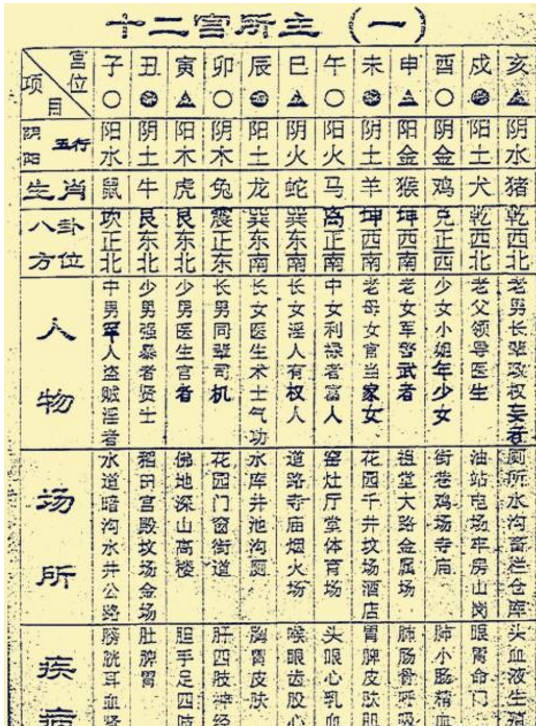 十二宫所主（一）
宫位 项目 子 丑 寅 卯 辰 巳 午 未 申 酉 戌 亥
阴阳 五行 阳水 阴土 阳木 阴木 阳土 阴火 阳火 阴土 阳金 阴金 阳土 阴水
生肖 鼠 牛 虎 兔 龙 蛇 马 羊 猴 鸡 犬 猪
八卦方位 坎正北 艮东北 艮东北 震正东 巽东南 巽东南 离正南 坤西南 坤西南 兑正西 乾西北 乾西北
人物
中男罪人盗贼淫者
少男强暴者贤士
少男医生官者
长男同辈司机
长女医生术士气功
长女淫人有权人
中女利禄者富人
老母女官当家女
老女军警武者
少女小姐年少女
老父领导医生
老男长辈政权妄者
场所
水道暗沟水井公路
稻田宫殿坟场金场
佛地深山高楼
花园门窗街道
水库井池沟厕
道路寺庙烟火场
窑灶厅堂体育场
花园千井坟场酒店
祖堂大路金属场
街巷鸡场寺庙
油站电场牢房山岗
厕所水沟畜栏仓库
疾病
膀胱耳血肾
肚脾胃
胆手足四肢
肝四肢神经
胸胃皮肤
喉眼齿股心
头眼心乳血
胃脾皮肤胆
肺肠骨呼吸
肺小肠精血
眼胃命门
头血液生